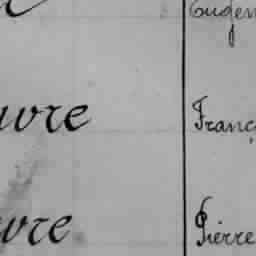 Eugen
uvre Franç
uvre Pierre